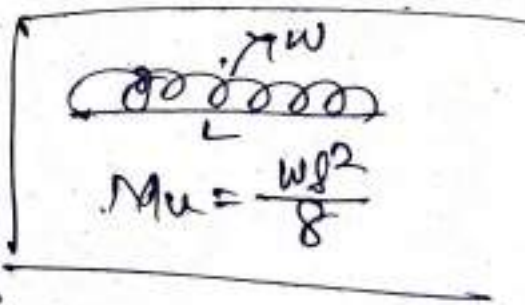 w
L
Mu = wl²/8